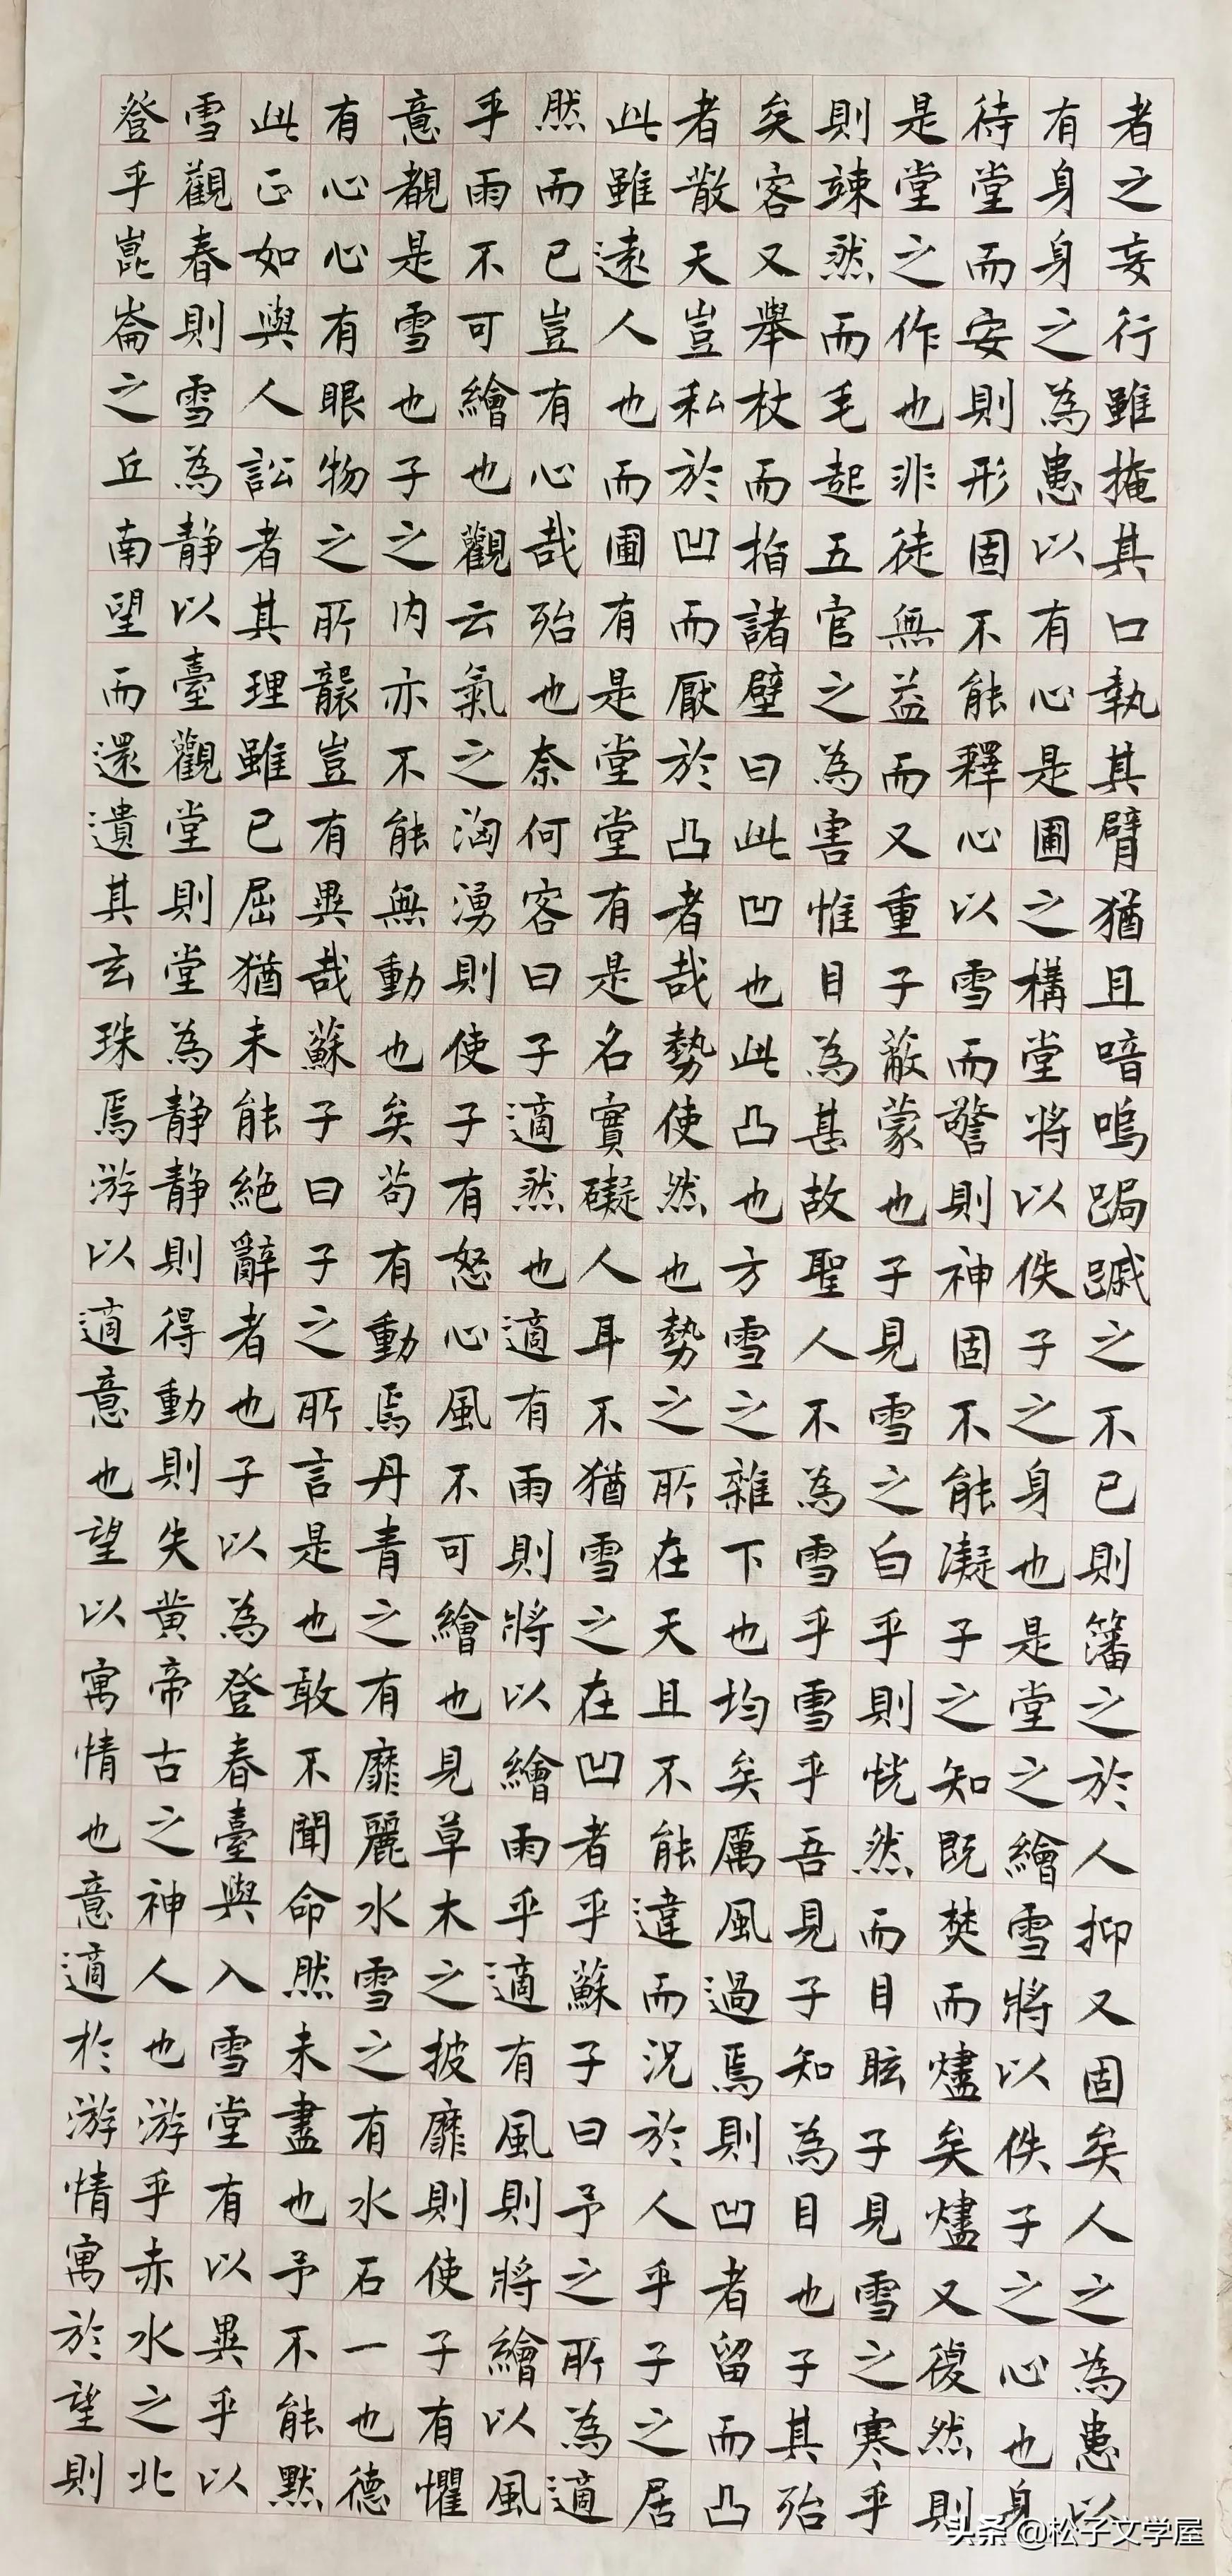 者之妄行雖掩其口執其臂猶且喑嗚跼蹙之不已則籓之於人抑又固矣人之為患以
有身身之為患以有心是圃之構堂將以佚子之身也是堂之繪雪將以佚子之心也身
待堂而安則形固不能釋心以雪而警則神固不能凝子之知既焚而燼矣燼又復然則
是堂之作也非徒無益而又重子蔽蒙也子見雪之白乎則恍然而目眩子見雪之寒乎
則竦然而毛起五官之為害惟目為甚故聖人不為雪乎雪乎吾見子知為目也子其殆
矣客又舉杖而指諸壁曰此凹也此凸也方雪之雜下也均矣厲風過焉則凹者留而凸
者散天豈私於凹而厭於凸者哉勢使然也勢之所在天且不能違而況於人乎子之居
此雖遠人也而圃有是堂堂有是名實礙人耳不猶雪之在凹者乎蘇子曰予之所為適
然而已豈有心哉殆也奈何客曰子適然也適有雨則將以繪雨乎適有風則將繪以風
乎雨不可繪也觀云氣之洶湧則使子有怒心風不可繪也見草木之披靡則使子有懼
意覩是雪也子之內亦不能無動也矣苟有動焉丹青之有靡麗水雪之有水石一也德
有心心有眼物之所襲豈有異哉蘇子曰子之所言是也敢不聞命然未盡也予不能默
此正如與人訟者其理雖已屈猶未能絕辭者也子以為登春臺與入雪堂有以異乎以
雪觀春則雪為靜以臺觀堂則堂為靜靜則得動則失黃帝古之神人也游乎赤水之北
登乎崑崙之丘南望而還遺其玄珠焉游以適意也望以寓情也意適於游情寓於望則
头条 @松子文学屋